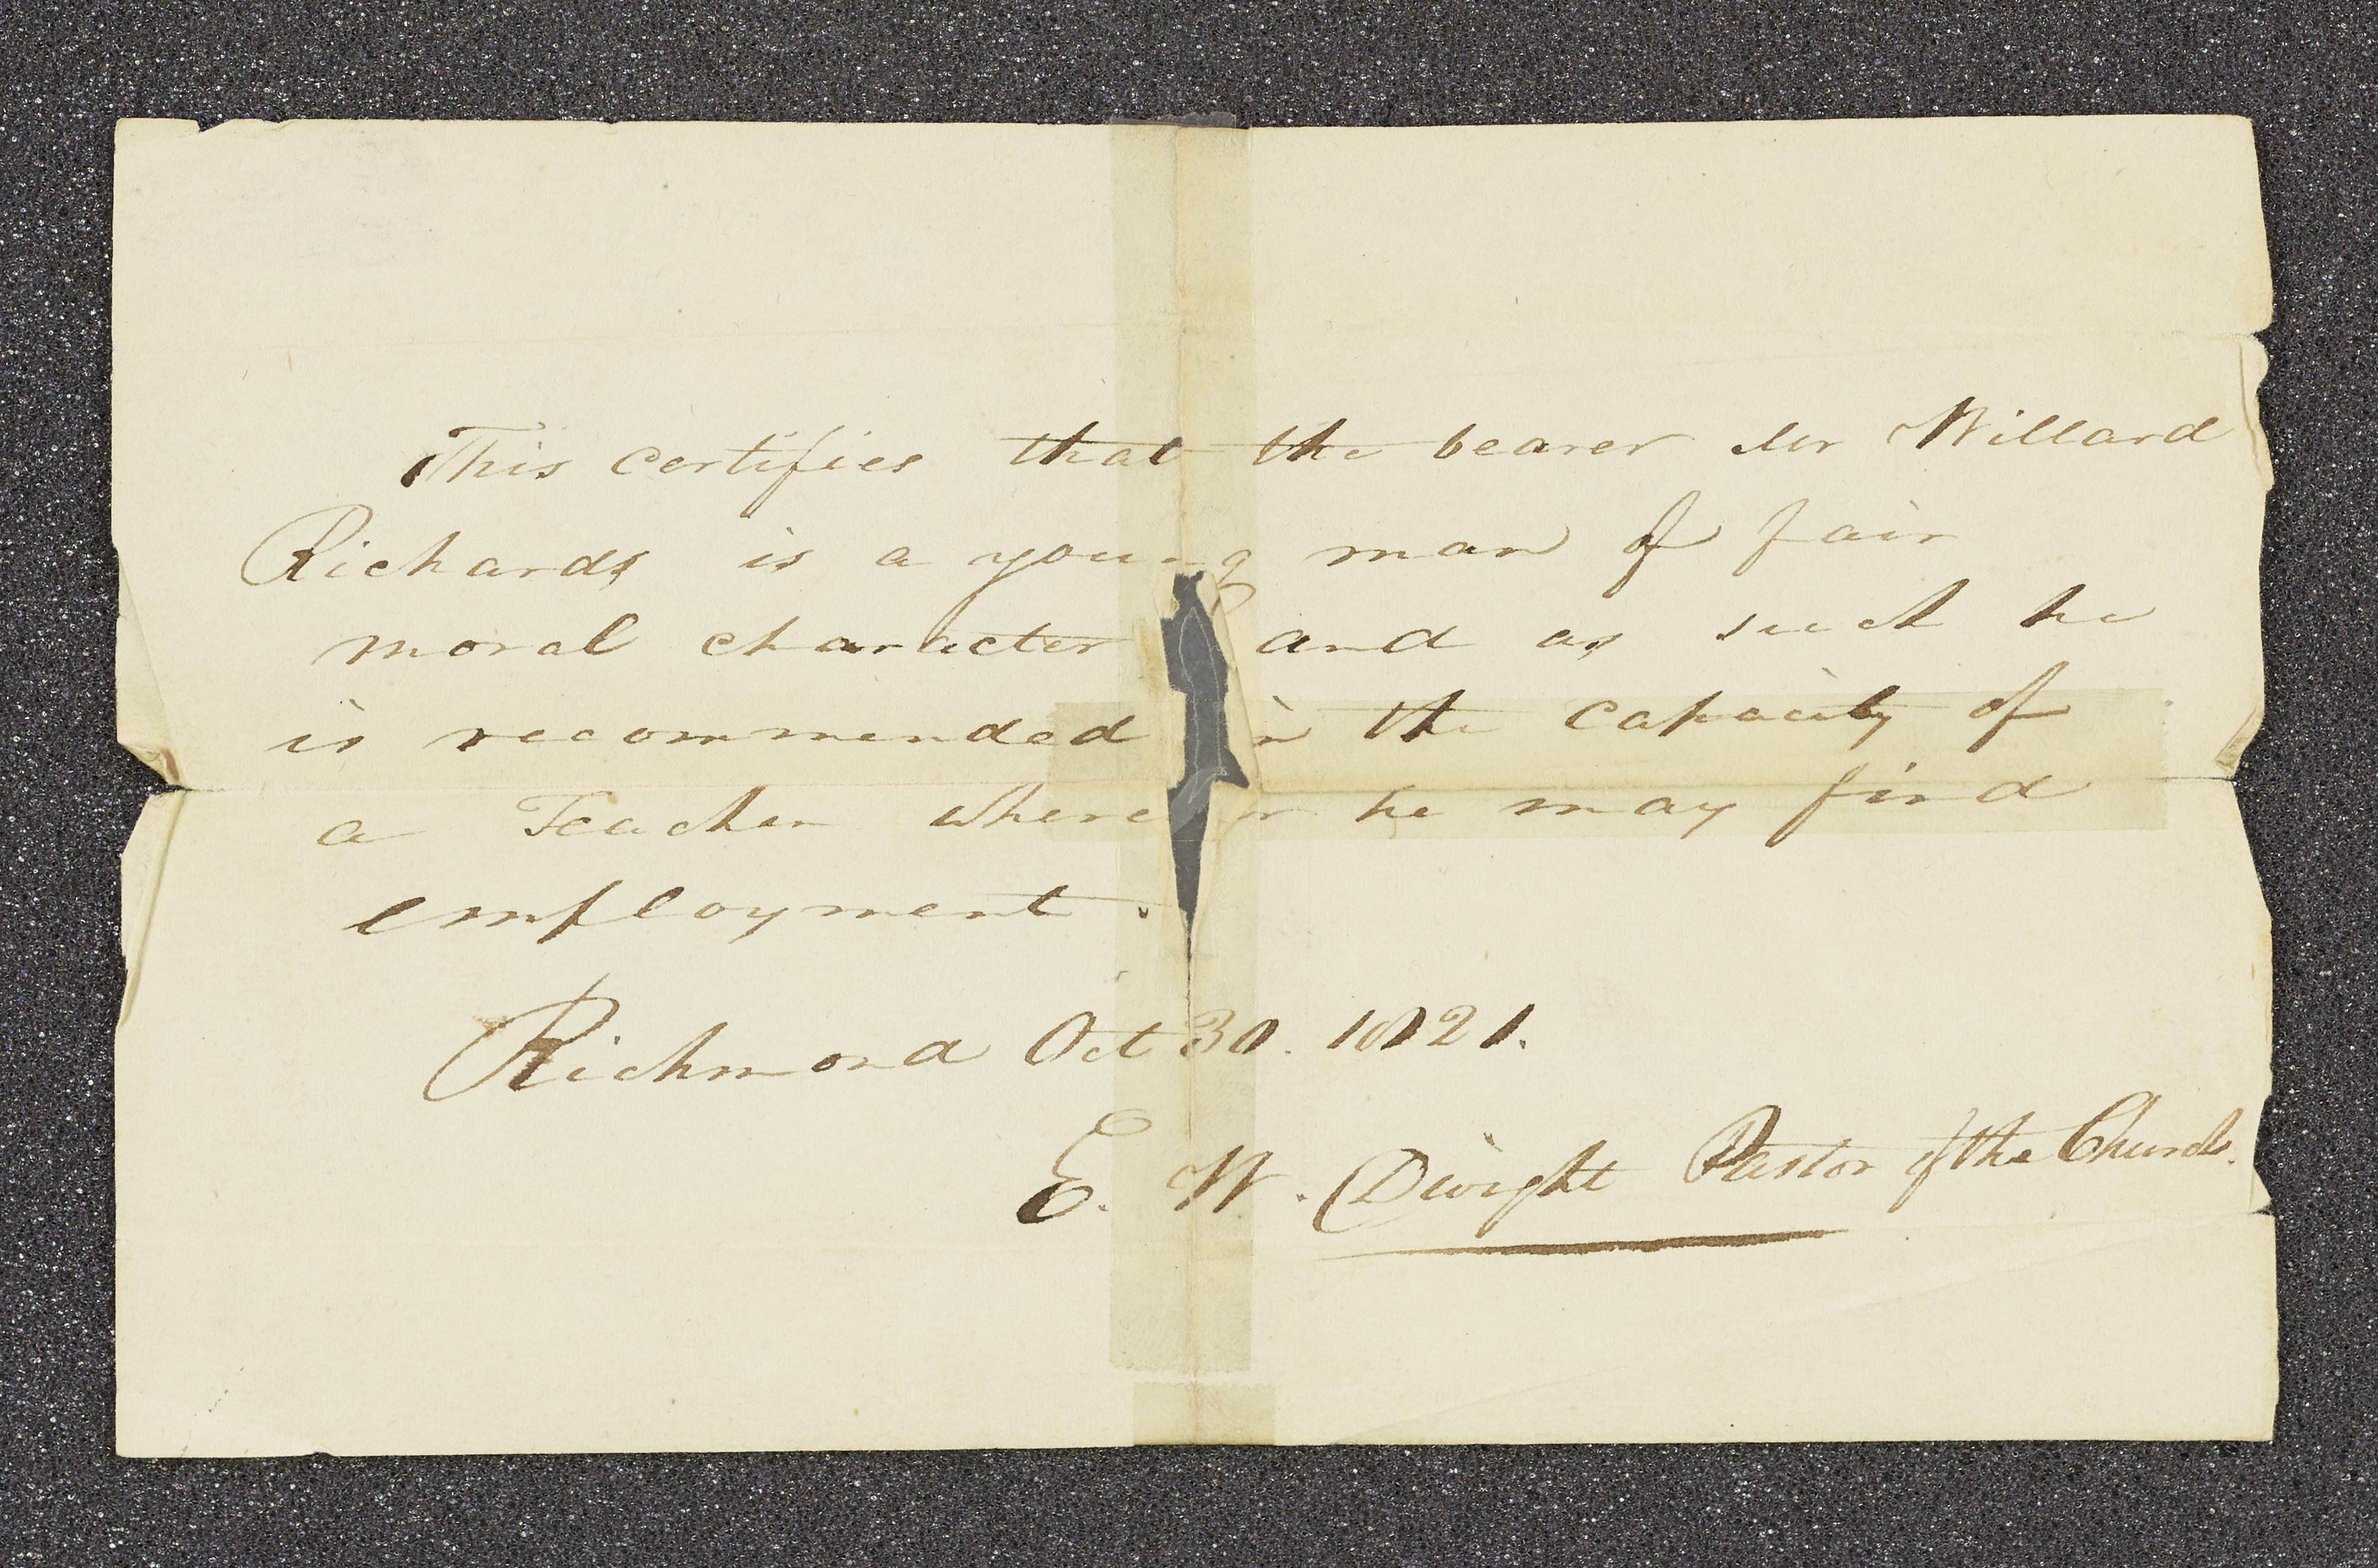 This certifies that the bearer Mr Willard
Richards is a young man of fair
moral character and as such he
is recommended in the capacity of
a Teacher where r he may find
employment.
Richmond Oct 30. 1821.
E. W. Dwight Pastor of the Church.